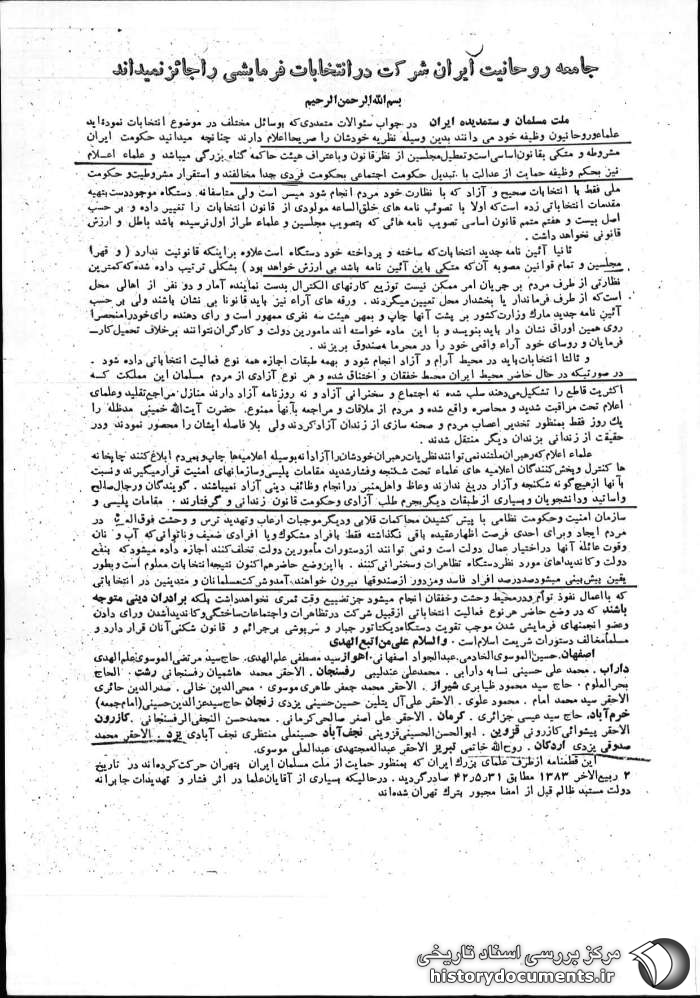 جامعه روحانیت ایران شرکت در انتخابات فرمایشی را جائز نمیداند
بسم‌الله الرحمن الرحیم
ملت مسلمان و ستمدیده ایران در جواب سئوالات متعددی که بوسائل مختلف در موضوع انتخابات نموده‌اید
علماء و روحانیون وظیفه خود می دانند بدین وسیله نظریه خودشان را صریحا اعلام دارند چنانچه میدانید حکومت ایران
مشروطه و متکی بقانون اساسی است و تعطیل مجلسین از نظر قانون و باعتراف هیئت حاکمه گناه بزرگی میباشد و علماء اعلام
نیز بحکم وظیفه حمایت از عدالت با تبدیل حکومت اجتماعی بحکومت فردی جدا مخالفند و استقرار مشروطیت و حکومت
ملی فقط با انتخابات صحیح و آزاد که با نظارت خود مردم انجام شود میسر است ولی متاسفانه دستگاه موجود دست بتهیه
مقدمات انتخاباتی زده است که اولا با تصویب نامه های خلق‌الساعه موادی از قانون انتخابات را تغییر داده و بر حسب
اصل بیست و هفتم متمم قانون اساسی تصویب نامه هائی که بتصویب مجلسین و علماء طراز اول نرسیده باشد باطل و ارزش
قانونی نخواهد داشت.
ثانیا آئین نامه جدید انتخابات که ساخته و پرداخته خود دستگاه است علاوه بر اینکه قانونیت ندارد ( و قهرا
مجلسین و تمام قوانین مصوبه آن که متکی باین آئین نامه باشد بی ارزش خواهد بود ) بشکلی ترتیب داده شده که کمترین
نظارتی از طرف مردم بر جریان امر ممکن نیست توزیع کارتهای الکترال بدست نماینده آمار و دو نفر از اهالی محل
است که از طرف فرماندار یا بخشدار محل تعیین میگردند. ورقه های آراء نیز باید قانونا بی نشان باشند ولی بر حسب
آئین نامه جدید مارک وزارت کشور بر پشت آنها چاپ و بمهر هیئت سه نفری ممهور است و رای دهنده رای خود را منحصرا
روی همین اوراق نشان دار باید بنویسد و با این ماده خواسته اند مامورین دولت و کارگران نتوانند بر خلاف تحمیل کار
فرمایان و روسای خود آراء واقعی خود را در محرمانه صندوق بریزند.
و ثالثا انتخابات باید در محیط آرام و آزاد انجام شود و بهمه طبقات اجازه همه نوع فعالیت انتخاباتی داده شود.
در صورتیکه در حال حاضر محیط ایران محیط خفقان و اختناق شده و هر نوع آزادی از مردم مسلمان این مملکت که
اکثریت قاطع را تشکیل می‌دهند سلب شده نه اجتماع و سخنرانی آزاد و نه روزنامه آزاد دارند منازل مراجع تقلید و علمای
اعلام تحت مراقبت شدید و محاصره واقع شده و مردم از ملاقات و مراجعه بآنها ممنوع. حضرت آیت‌الله خمینی مدظله را
یک روز فقط بمنظور تخدیر اعصاب مردم و صحنه سازی از زندان آزاد کردند ولی بلا فاصله ایشان را محصور نمودند و در
حقیقت از زندانی بزندان دیگر منتقل شدند.
علماء اعلام که رهبران ملتند نمی توانند نظریات رهبران خودشان را آزادانه بوسیله اعلامیه‌ها چاپ و بمردم ابلاغ کنند چاپخانه
ها کنترل و پخش کنندگان اعلامیه های علماء تحت شکنجه و فشار شدید مقامات پلیسی و سازمانهای امنیت قرار میگیرند و نسبت
بآنها از هیچگونه شکنجه و آزار دریغ ندارند وعاظ و اهل منبر در انجام وظائف دینی آزاد نمیباشند. گویندگان و رجال صالح
و اساتید و دانشجویان و بسیاری از طبقات دیگر بجرم طلب آزادی و حکومت قانون زندانی و گرفتارند. مقامات پلیسی و
سازمان امنیت و حکومت نظامی با پیش کشیدن محاکمات قلابی و دیگر موجبات ارعاب و تهدید ترس و وحشت فوق‌العاده در
مردم ایجاد و برای احدی فرصت اظهار عقیده باقی نگذاشته فقط بافراد مشکوک و یا افرادی ضعیف و ناتوانی که آب و نان
وقوت عائله آنها در اختیار عمال دولت است و نمی توانند از دستورات مأمورین دولت تخلف کنند اجازه داده میشود که بنفع
دولت و کاندیدهای مورد نظر دستگاه تظاهرات و سخنرانی کنند. با این وضع حاضر هم اکنون نتیجه انتخابات معلوم است و بطور
یقین پیش بینی میشود صد در صد افراد فاسد و مزدور از صندوقها بیرون خواهند آمد و شرکت مسلمانان و متدینین در انتخاباتی
که با اعمال نفوذ توأم و در محیط وحشت و خفقان انجام میشود جز تضییع وقت ثمری نخواهد داشت بلکه برادران دینی متوجه
باشند که در وضع حاضر هر نوع فعالیت انتخاباتی از قبیل شرکت در تظاهرات و اجتماعات ساختگی و کاندید شدن و رای دادن
و عضو انجمنهای فرمایشی شدن موجب تقویت دستگاه دیکتاتور جبار و سرپوشی بر جرائم و قانون شکنی آنان قرار دارد و
مسلما مخالف دستورات شریعت اسلام است. والسلام علی من اتبع الهدی
اصفهان. حسین الموسوی الخادمی. عبدالجواد اصفهانی. اهواز سید مصطفی علم‌الهدی. حاج سید مرتضی الموسوی علم‌الهدی
داراب. محمد علی حسینی نسابه دارابی. محمد علی عندلیبی رفسنجان. الاحقر محمد هاشمیان رفسنجانی رشت. الحاج
بحرالعلوم. حاج سید محمود ضیابری شیراز. الاحقر محمد جعفر طاهری موسوی. محی‌الدین خالی. صدرالدین حائری
الاحقر سید محمد امام. محمود علوی. الاحقر علی آل یثلین حسین حسینی یزدی زنجان حاج سید عزالدین حسینی (امام جمعه)
خرم‌آباد. حاج سید عیسی جزائری. کرمان. الاحقر علی اصغر صالحی کرمانی. محمد حسن النجفی الرفسنجانی. کازرون
الاحقر پیشوائی کازرونی قزوین. ابوالحسن الحسینی قزوینی نجف‌آباد حسینعلی منتظری نجف آبادی یزد. الاحقر محمد
صدوقی یزدی اردکان. روح‌الله خاتمی تبریز الاحقر عبدالمجتهدی عبدالعلی موسوی.
این قطعنامه از طرف علمای بزرگ ایران که بمنظور حمایت از ملت مسلمان ایران بتهران حرکت کرده‌اند در تاریخ
۲ ربیع‌الاخر ۱۳۸۳ مطابق ۴۲٫۵٫۳۱ صادر گردید. در حالیکه بسیاری از آقایان علما در اثر فشار و تهدیدات جابرانه
دولت مستبد ظالم قبل از امضا مجبور بترک تهران شده‌اند
مرکز بررسی اسناد تاریخی
historydocuments.ir